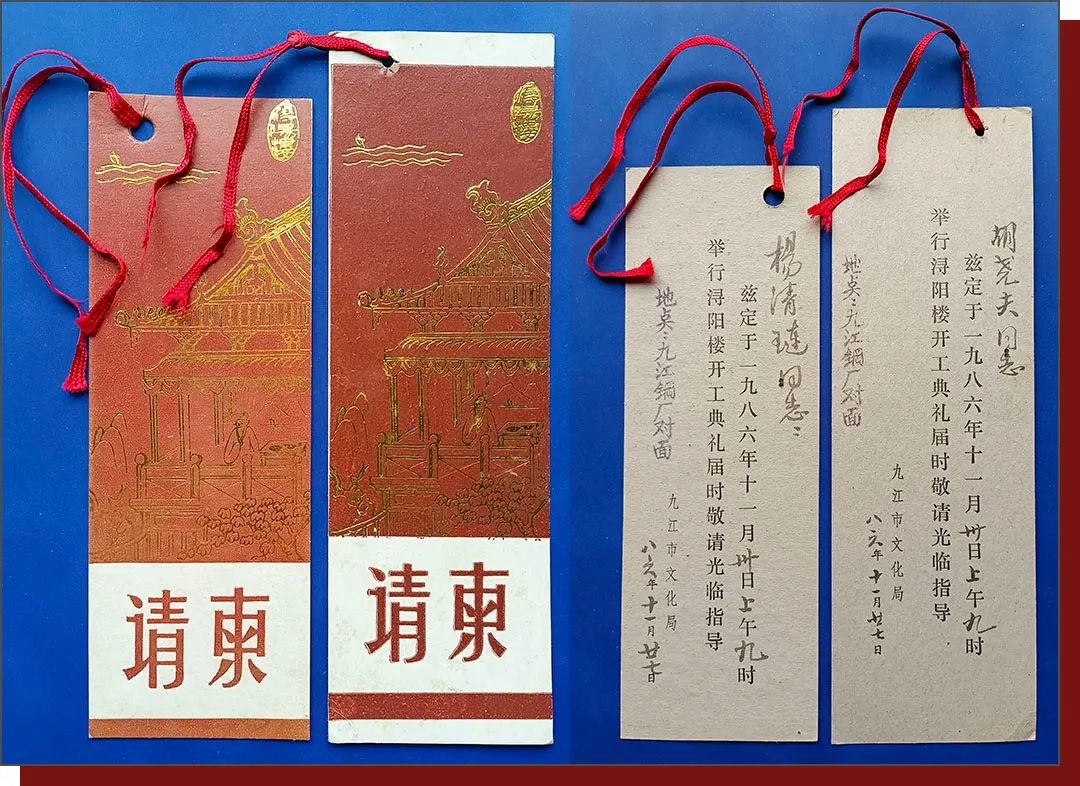 请柬
请柬
楊清璉同志:
兹定于一九八六年十一月卅日上午九时
举行浔阳楼开工典礼届时敬请光临指导
地奌:九江鋼厂对面
九江市文化局
八六年十一月廿七日
胡尧夫同志
兹定于一九八六年十一月卅日上午九时
举行浔阳楼开工典礼届时敬请光临指导
地奌:九江鋼厂对面
九江市文化局
八六年十一月廿七日